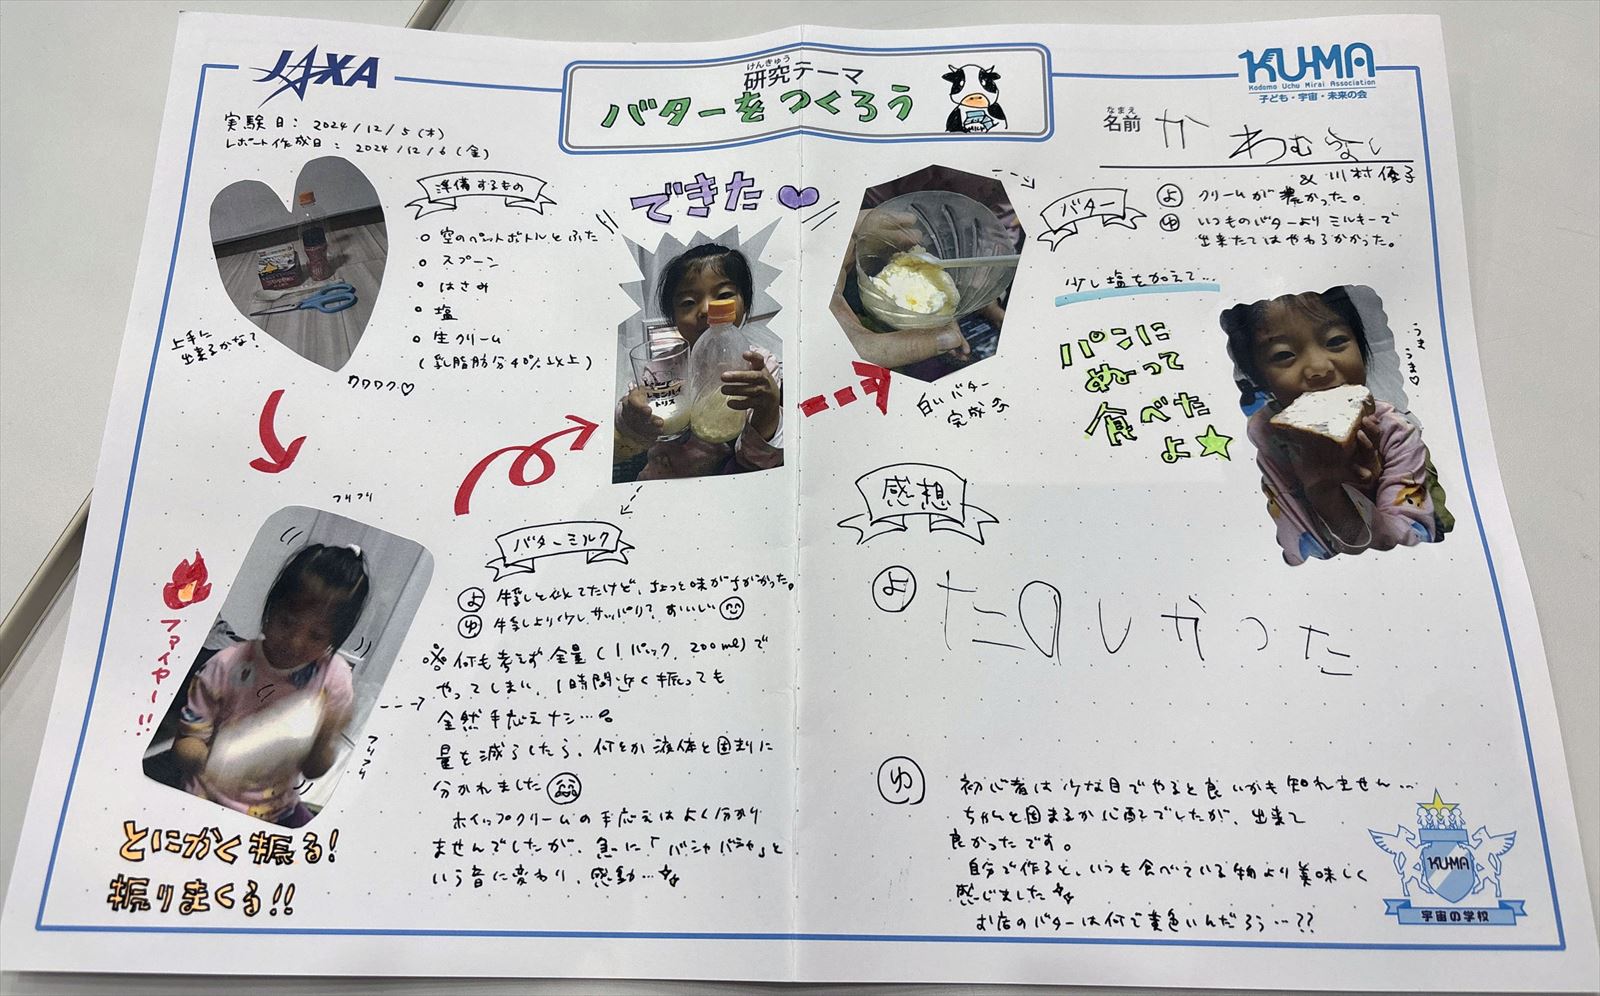 JAXA
けんきゅう
研究テーマ
バターをつくろう
MILK
KUMA
Kodomo Uchu Mirai Association
子ども・宇宙・未来の会
なまえ
名前
かわむらよし
& 川村優子
実験日: 2024/12/5(木)
レポート作成日: 2024/12/6(金)
準備するもの
空のペットボトルとふた
スプーン
はさみ
塩
生クリーム
(乳脂肪分40%以上)
上手に
出来るかな?
ワクワク♡
フリフリ
ファイヤー!!
フリフリ
とにかく振る!
振りまくる!!
できた
レモンハイ
トリス
バターミルク
よ 牛乳と似てたけど、ちょっと味がちがかった。
ゆ 牛乳より少しサッパリ?おいしい
※何も考えず全量(1パック、200ml)で
やってしまい、1時間近く振っても
全然手応えナシ…。
量を減らしたら、何とか液体と固まりに
分かれました
ホイップクリームの手応えはよく分かり
ませんでしたが、急に「バシャバシャ」と
いう音に変わり、感動…
白いバター
完成
バター
よ クリームが濃かった。
ゆ いつものバターよりミルキーで
出来たてはやわらかかった。
少し塩を加えて…
パンに
ぬって
食べた
よ☆
うま
うま♡
感想
よ たのしかった
ゆ 初心者は少な目でやると良いかも知れません…
ちゃんと固まるか心配でしたが、出来て
良かったです。
自分で作ると、いつも食べている物より美味しく
感じました
お店のバターは何で黄色いんだろう…??
KUMA
宇宙の学校